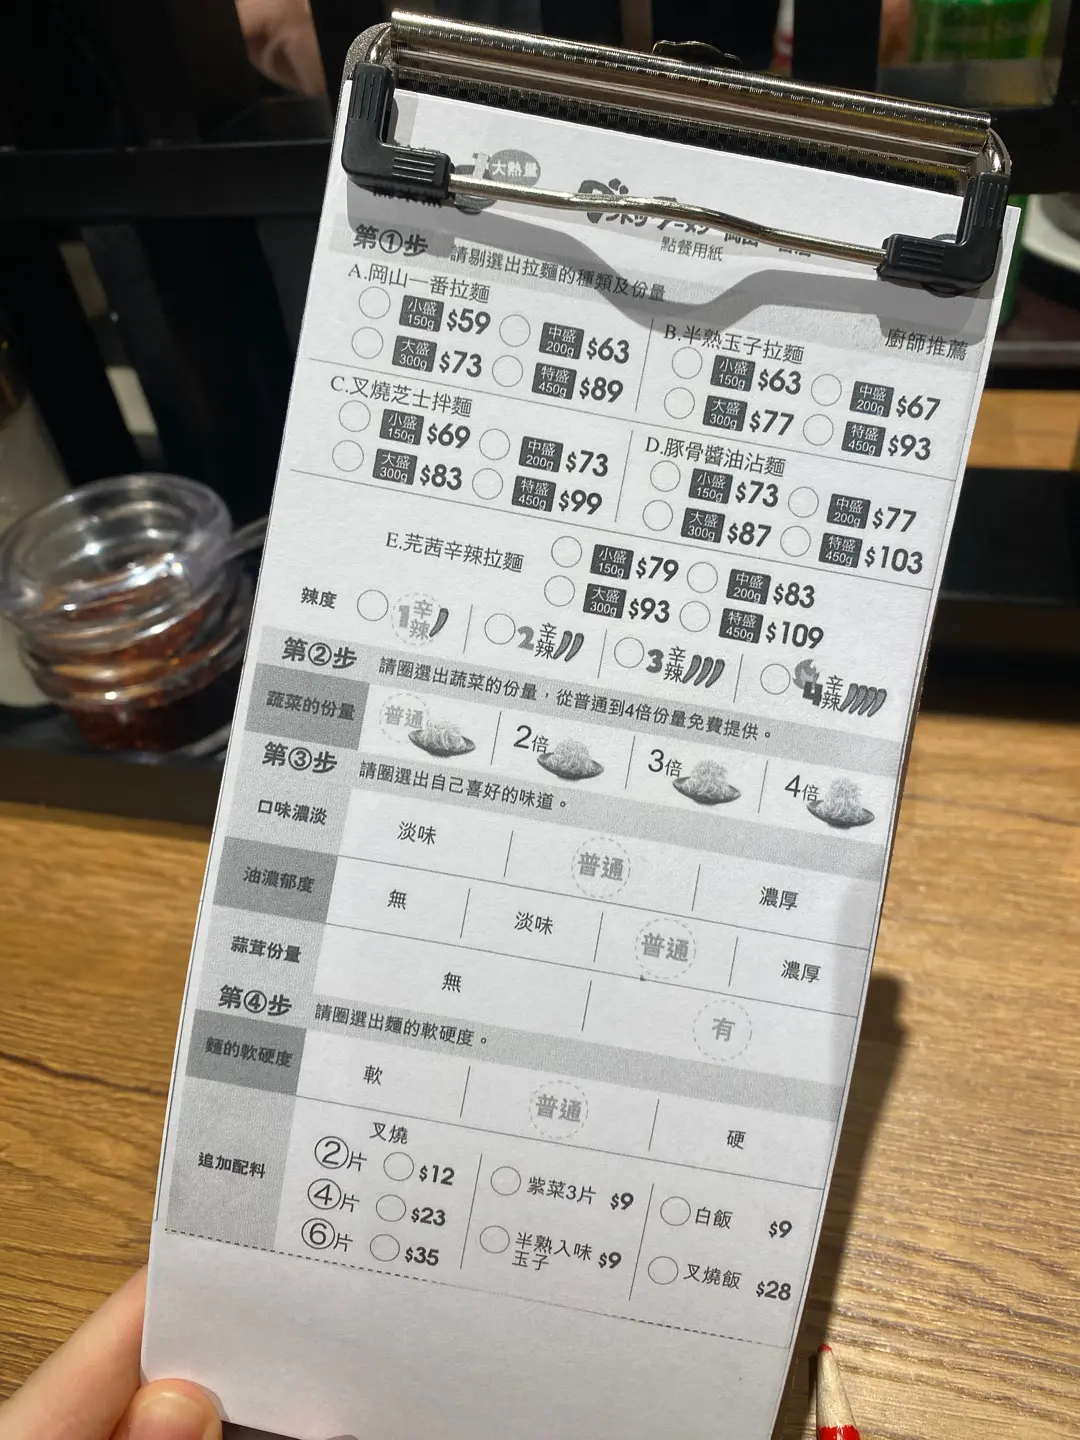 大熱量
點餐用紙
第①步 請剔選出拉麵的種類及份量
廚師推薦
A.岡山一番拉麵
小盛 150g $59 中盛 200g $63
大盛 300g $73 特盛 450g $89
B.半熟玉子拉麵
小盛 150g $63 中盛 200g $67
大盛 300g $77 特盛 450g $93
C.叉燒芝士拌麵
小盛 150g $69 中盛 200g $73
大盛 300g $83 特盛 450g $99
D.豚骨醬油沾麵
小盛 150g $73 中盛 200g $77
大盛 300g $87 特盛 450g $103
E.芫茜辛辣拉麵
小盛 150g $79 中盛 200g $83
大盛 300g $93 特盛 450g $109
辣度 1辛辣 2辛辣 3辛辣 4辛辣
第②步 請圈選出蔬菜的份量，從普通到4倍份量免費提供。
蔬菜的份量 普通 2倍 3倍 4倍
第③步 請圈選出自己喜好的味道。
口味濃淡 淡味 普通 濃厚
油濃郁度 無 淡味 普通 濃厚
蒜茸份量 無 有
第④步 請圈選出麵的軟硬度。
麵的軟硬度 軟 普通 硬
追加配料
叉燒
②片 $12
④片 $23
⑥片 $35
紫菜3片 $9
半熟入味玉子 $9
白飯 $9
叉燒飯 $28